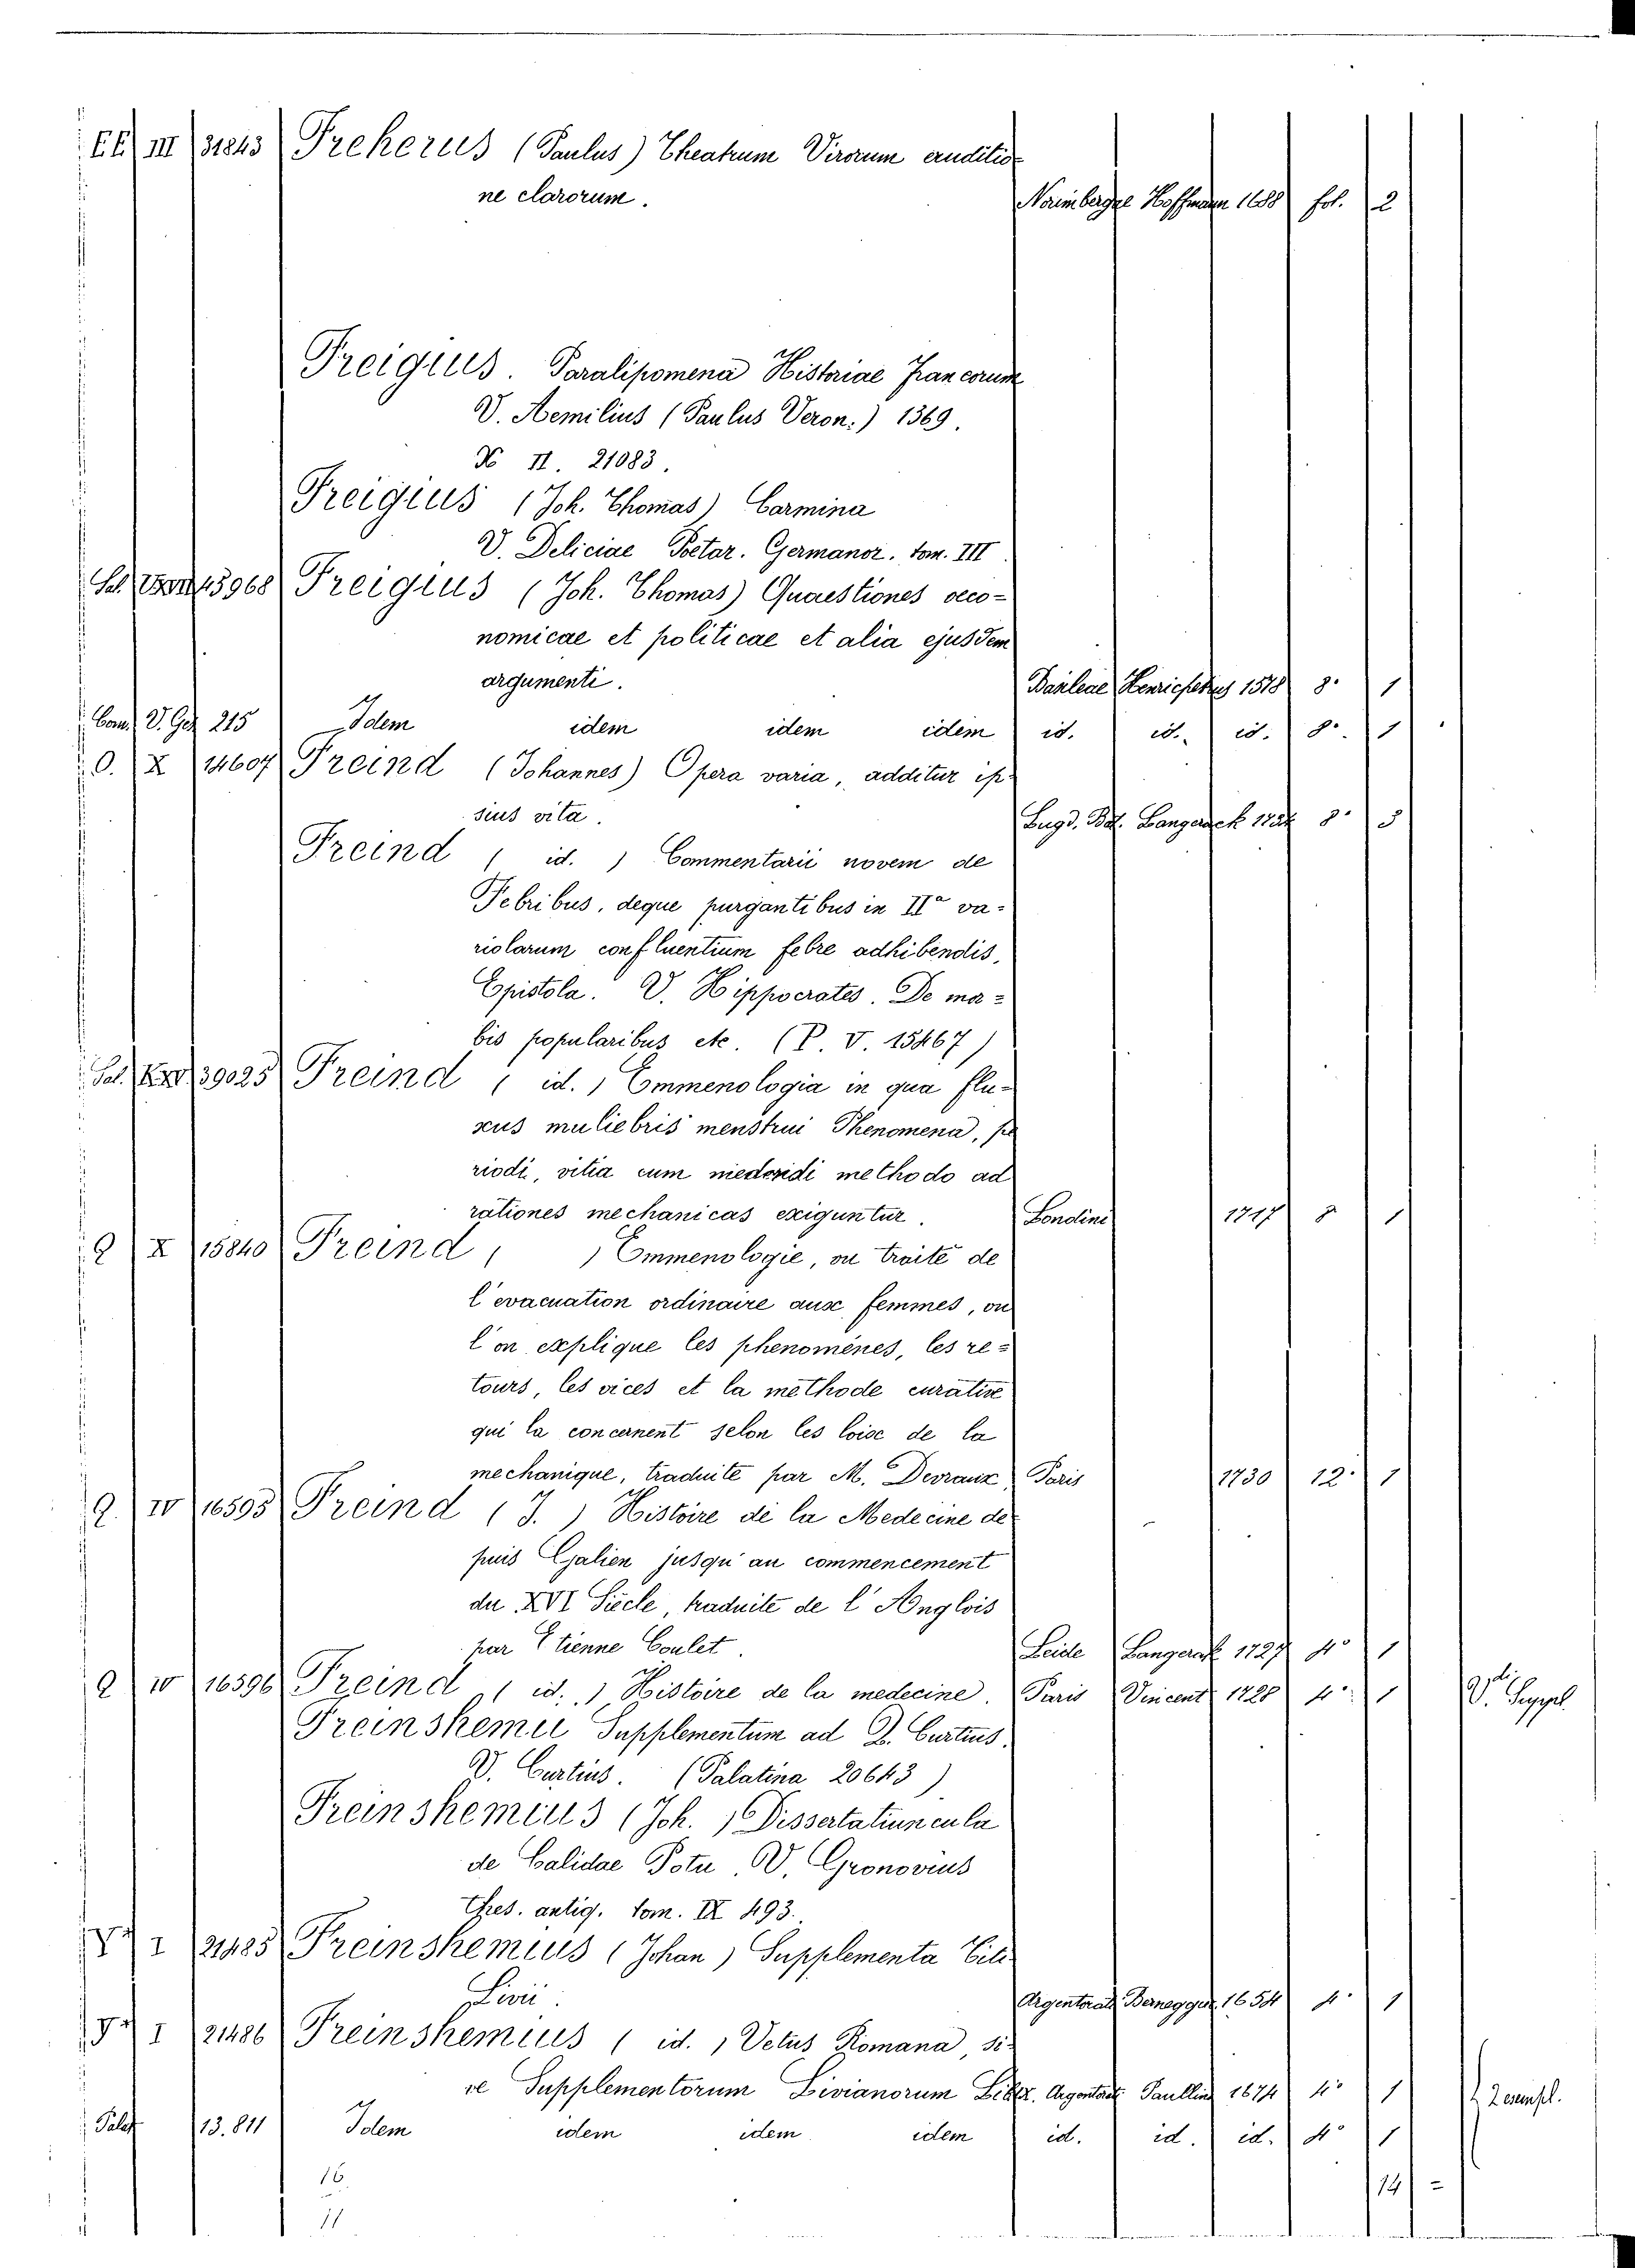 EE III 31843 Freherus (Paulus) Theatrum Virorum eruditio
ne clarorum. Norimbergae Hoffmann 1688 fol. 2
Freigius. Paralipomena Historiae Francorum
V. Aemilius (Paulus Veron.) 1369.
N II. 21083.
Freigius (Joh. Thomas) Carmina
V. Deliciae Poetar. Germanor. tom. III.
45968 Freigius (Joh. Thomas) Quaestiones oeco=
nomicae et politicae et alia ejusdem
argumenti. Basileae Henricpetrus 1578 8. 1
Cam. V. Gef. 215 Idem idem idem idem id. id. id. 8. 1
O. X 14607 Freind (Johannes) Opera varia, additur ip
sius vita. Lugd. Bat. Langerack 1734 8. 3
Freind ( id. ) Commentarii novem de
Febribus, deque purgantibus in IIa va=
riolarum confluentium febre adhibendis,
Epistola. V. Hippocrates. De mor=
bis popularibus etc. (P. V. 15467)
39025 Freind ( id. ) Emmenologia in qua flu=
xus muliebris menstrui Phenomena, pe
riodi, vitia cum medendi methodo ad
rationes mechanicas exiguntur. Londini 1717 8 1
Q X 15840 Freind, ) Emmenologie, ou traité de
l'evacuation ordinaire aux femmes, ou
l'on explique les phenomènes, les re=
tours, les vices et la methode curative
qui la concernent selon les loix de la
mechanique, traduite par M. Devaux Paris 1730 12. 1
Q. IV 16595 Freind (J.) Histoire de la Medecine de
puis Galien jusqu'au commencement
du XVI Siècle, traduite de l'Anglois
par Etienne Coulet. Leide Langerak 1727 4° 1
Q IV 16596 Freind ( id. ) Histoire de la medecine. Paris Vincent 1728 4° 1 V. Suppl.
Freinshemii Supplementum ad Q. Curtius.
V. Curtius. (Palatina 20643)
Freinshemius (Joh.) Dissertatiuncula
de Calidae Potu. V. Gronovius
Thes. antiq. tom. IX 493.
I 21485 Freinshemius (Johan) Supplementa Titi
Livii. Argentorati Bernegger 1654 4. 1
I 21486 Freinshemius ( id. ) Vetus Romana, si
ve Supplementorum Livianorum Argentorati Paullin 1674 4° 1 2 exempl.
Palat 13.811 Idem idem idem idem id. id. id. 4° 1
16. 14 -
11